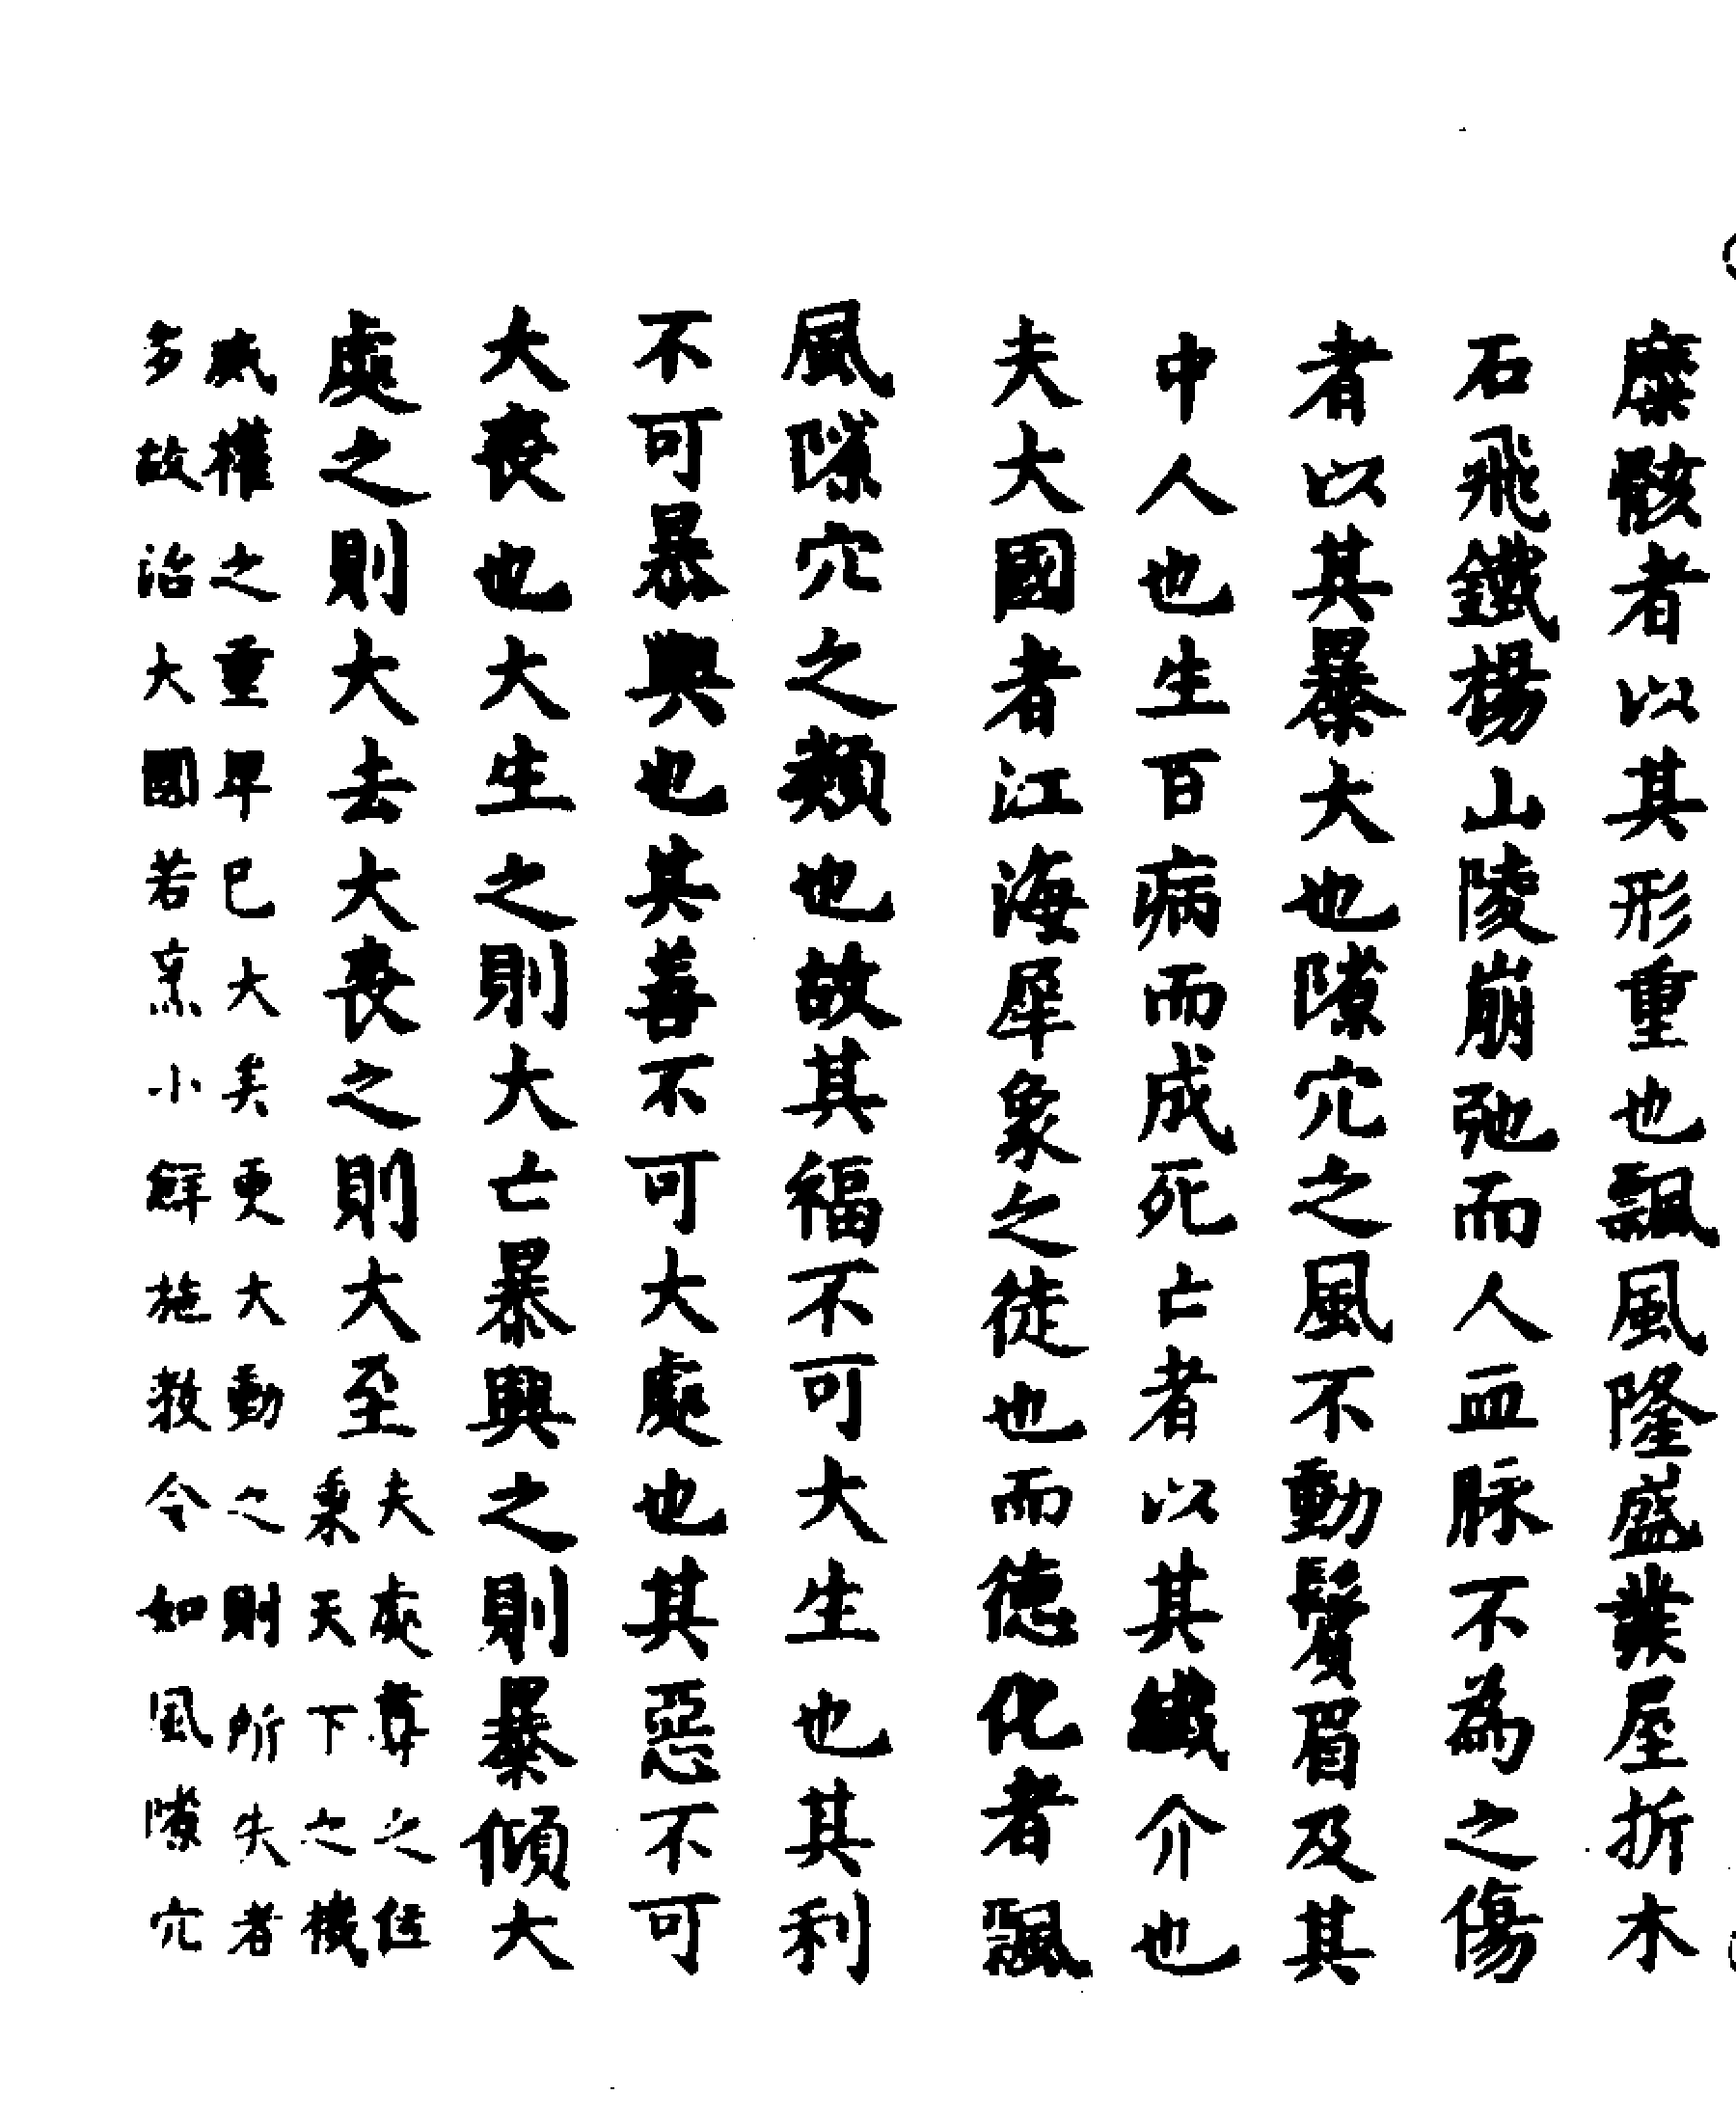 糜骸者以其形重也飄風隆盛業屋折木
石飛鐵楊山陵崩弛而人血脉不為之傷
者以其暴大也隙穴之風不動鬢眉及其
中人也生百病而成死亡者以其纎介也
夫大國者江海犀象之徒也而徳化者飄
風隙穴之類也故其福不可大生也其利
不可暴興也其善不可大處也其惡不可
大喪也大生之則大亡暴興之則暴傾大
處之則大去大喪之則大至
夫處尊之位
秉天下之機
威權之重早已大矣更大動之則所失者
多故治大國若烹小鮮施教令如風隙穴